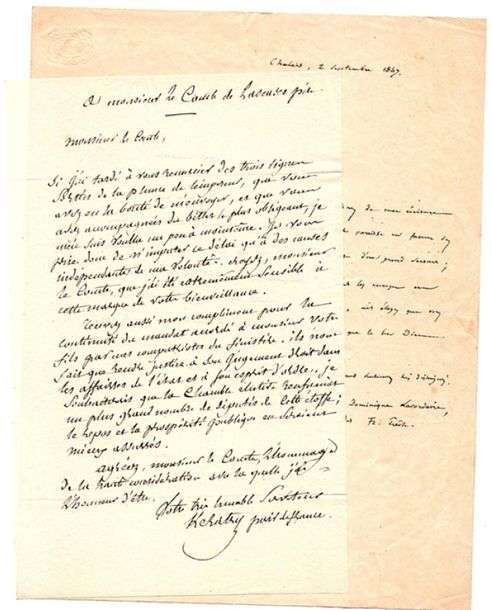 Chalais, 2 Septembre 1847.
A monsieur le Comte de Lascases père
monsieur le Comte,
Si j'ai tardé à vous remercier des trois lignes
sorties de la plume de l'empereur, que vous
avez eu la bonté de m'envoyer, et que vous
avez accompagnées du billet le plus obligeant, je
m'en suis voulu un peu à moi-même. Je vous
prie donc de n'imputer ce délai qu'à des causes
indépendantes de ma volonté. Croyez, monsieur
le Comte, que j'ai été extrêmement sensible à
cette marque de votre bienveillance.
Recevez aussi mon compliment pour la
continuité du mandat accordé à monsieur votre
fils par mes compatriotes du finistère. ils n'ont
fait que rendre justice à son jugement droit dans
les affaires de l'état et à son esprit d'ordre. je
souhaiterais que la Chambre élective renfermât
un plus grand nombre de députés de cette étoffe;
le repos et la prospérité publique en seraient
mieux assurés.
agréez, monsieur le Comte, l'hommage
de la haute considération avec laquelle j'ai
l'honneur d'être.
Votre très humble Serviteur
Kératry pair de france.
de mon
d'un grand
que
Dominique Lacordaire,
des Fr. Prêch.